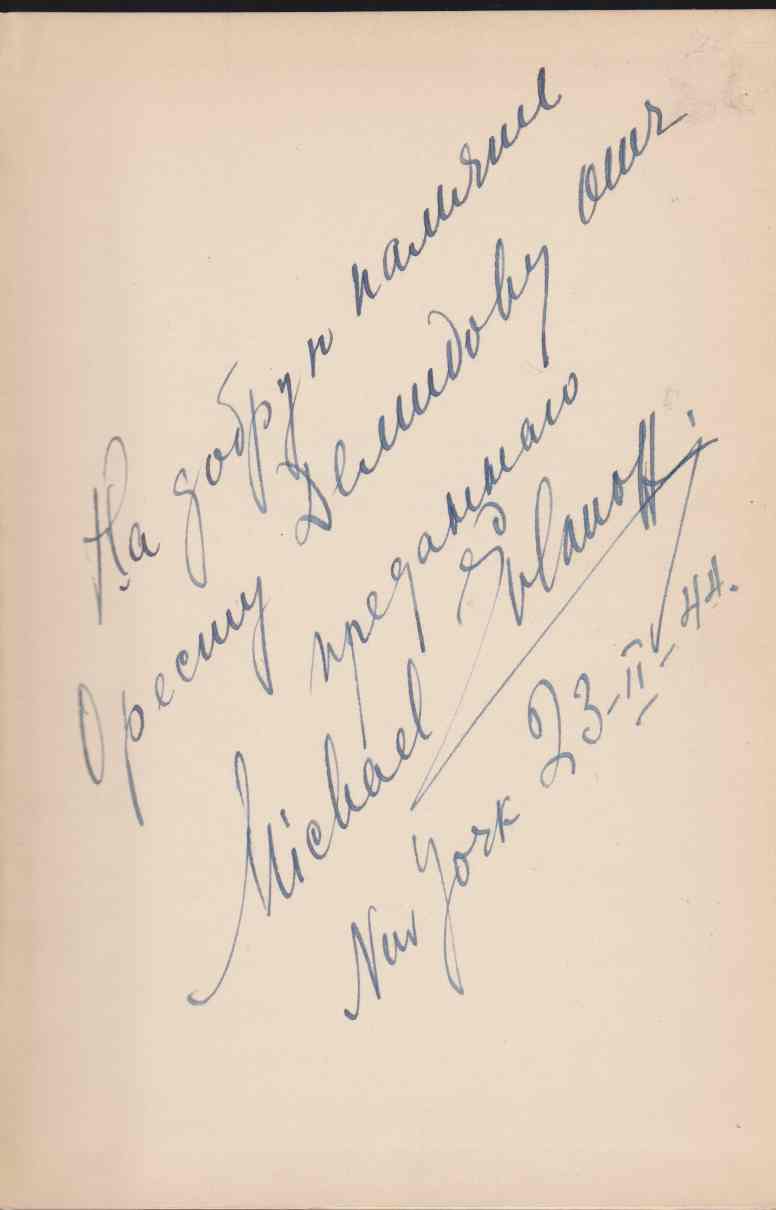 На добрую память
Оресту Демидову отъ
преданнаго
Michael Evlanoff
New York 23-II-44.